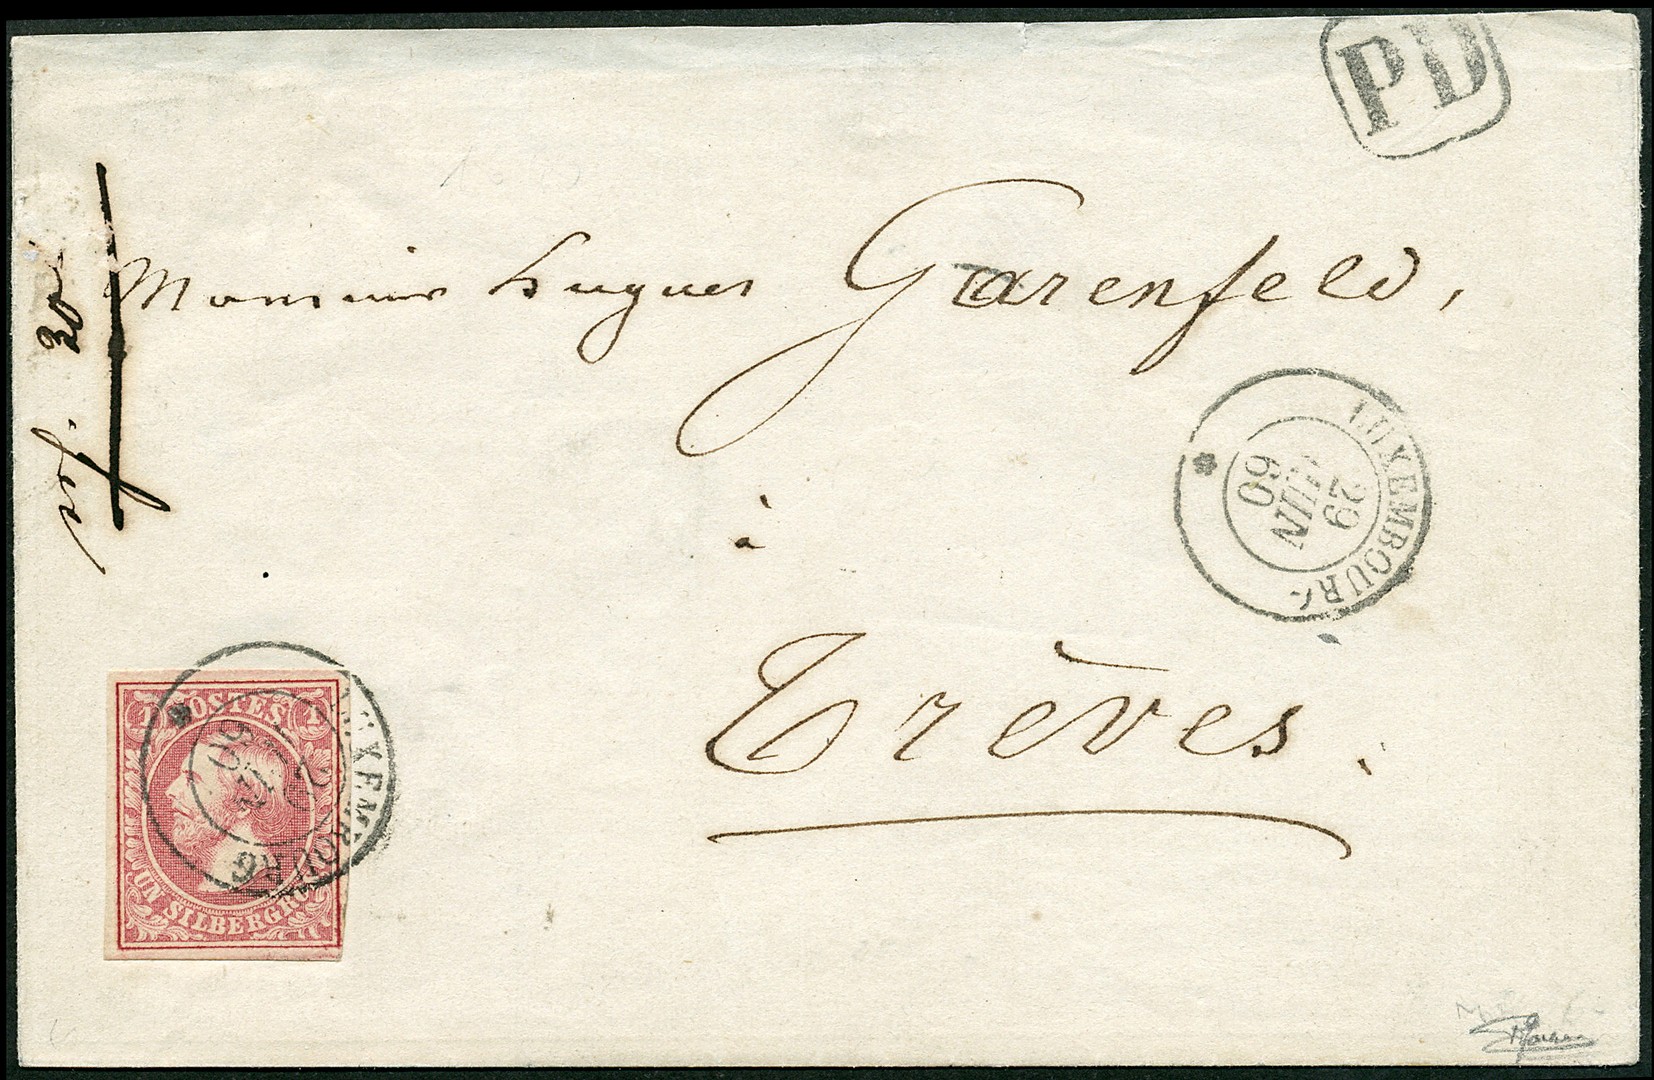 PD
Monsieur Hugues Garenfeld,
à
Trèves.
LUXEMBOURG
29
JUIN
60
30
1 POSTES 1
UN SILBERGROS
LUXEMBOURG
60